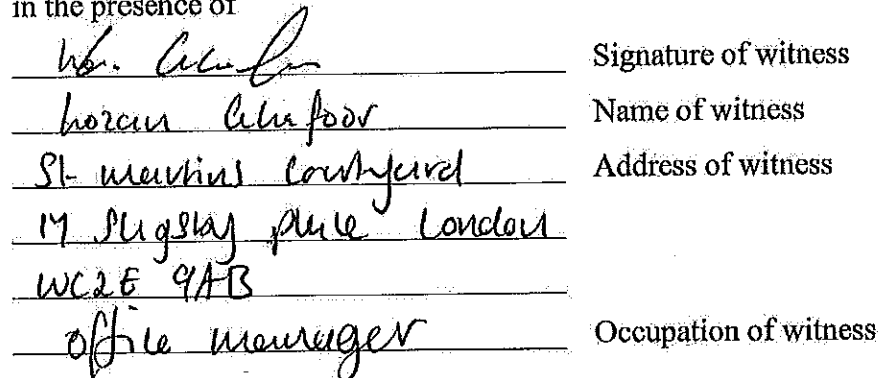 in the presence of
Signature of witness
Name of witness
St martins Courtyard Address of witness
17 Slingsby place London
WC2E 9AB
office manager Occupation of witness